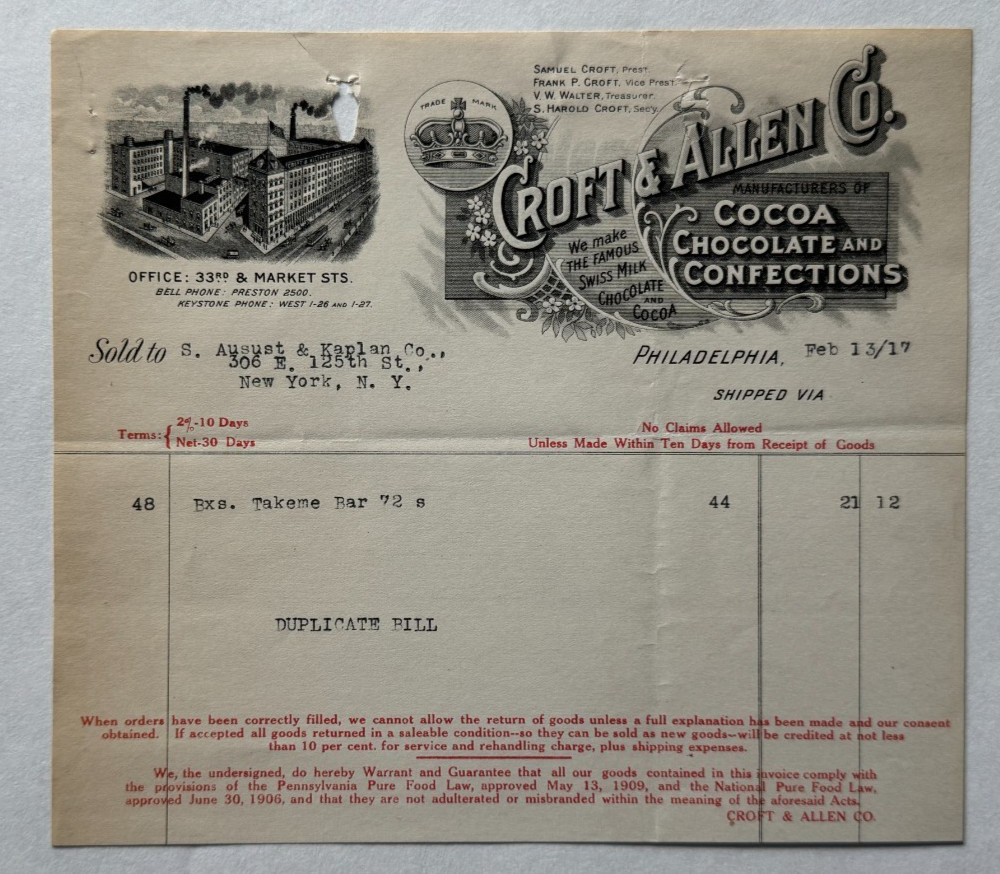 SAMUEL CROFT, Prest.
FRANK P. CROFT, Vice Prest.
V. W. WALTER, Treasurer.
S. HAROLD CROFT, Sec'y.
TRADE MARK
CROFT & ALLEN CO.
MANUFACTURERS OF
COCOA
CHOCOLATE AND
CONFECTIONS
We make
THE FAMOUS
SWISS MILK
CHOCOLATE
AND
COCOA
OFFICE: 33RD & MARKET STS.
BELL PHONE: PRESTON 2500.
KEYSTONE PHONE: WEST 1-26 AND 1-27.
Sold to S. Ausust & Kaplan Co.,
306 E. 125th St.,
New York, N. Y.
PHILADELPHIA, Feb 13/17
SHIPPED VIA
Terms: { 2%-10 Days
Net-30 Days
No Claims Allowed
Unless Made Within Ten Days from Receipt of Goods
48 Bxs. Takeme Bar 72 s 44 21 12
DUPLICATE BILL
When orders have been correctly filled, we cannot allow the return of goods unless a full explanation has been made and our consent
obtained. If accepted all goods returned in a saleable condition--so they can be sold as new goods--will be credited at not less
than 10 per cent. for service and rehandling charge, plus shipping expenses.
We, the undersigned, do hereby Warrant and Guarantee that all our goods contained in this invoice comply with
the provisions of the Pennsylvania Pure Food Law, approved May 13, 1909, and the National Pure Food Law,
approved June 30, 1906, and that they are not adulterated or misbranded within the meaning of the aforesaid Acts.
CROFT & ALLEN CO.